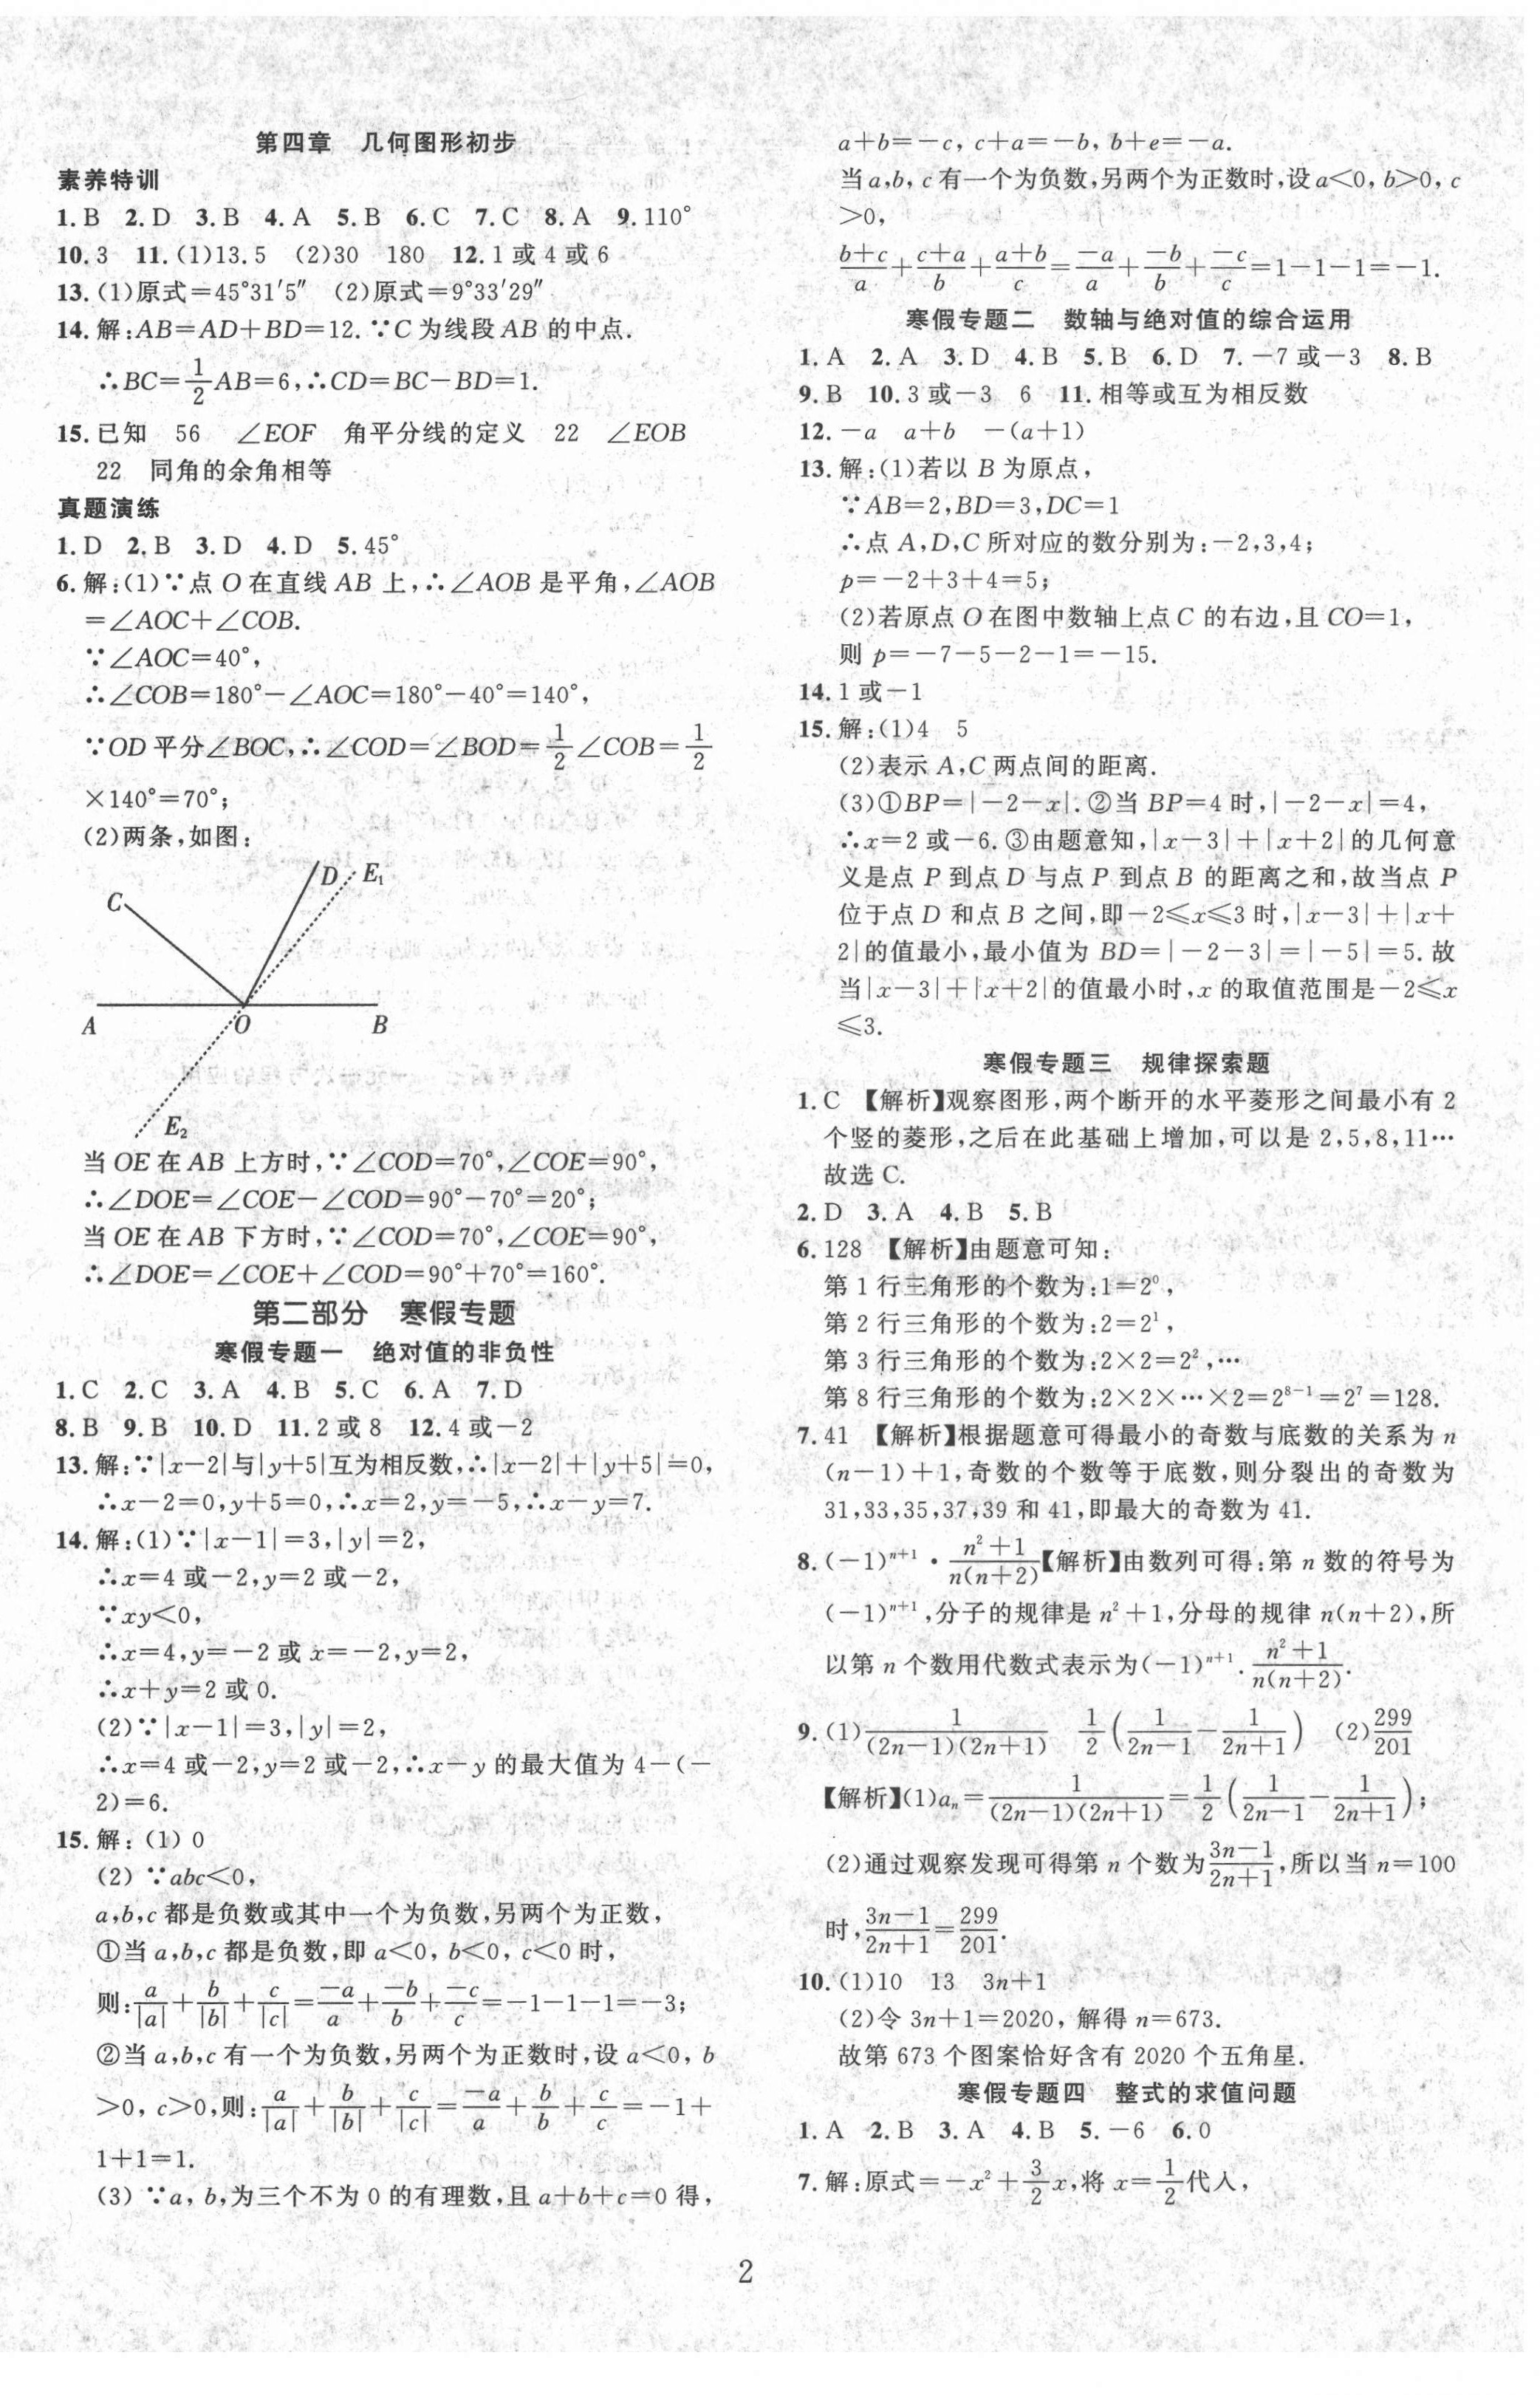 第四章 几何图形初步
素养特训
1.B 2.D 3.B 4.A 5.B 6.C 7.C 8.A 9.110°
10.3 11.(1)13.5 (2)30 180 12.1或4或6
13.(1)原式=45°31′5″ (2)原式=9°33′29″
14.解:AB=AD+BD=12.∵C为线段AB的中点.
∴BC=1/2AB=6,∴CD=BC-BD=1.
15.已知 56 ∠EOF 角平分线的定义 22 ∠EOB
22 同角的余角相等
真题演练
1.D 2.B 3.D 4.D 5.45°
6.解:(1)∵点O在直线AB上,∴∠AOB是平角,∠AOB
=∠AOC+∠COB.
∵∠AOC=40°,
∴∠COB=180°-∠AOC=180°-40°=140°,
∵OD平分∠BOC,∴∠COD=∠BOD=1/2∠COB=1/2
×140°=70°;
(2)两条,如图:
C D E₁
A O B
E₂
当OE在AB上方时,∵∠COD=70°,∠COE=90°,
∴∠DOE=∠COE-∠COD=90°-70°=20°;
当OE在AB下方时,∵∠COD=70°,∠COE=90°,
∴∠DOE=∠COE+∠COD=90°+70°=160°.
第二部分 寒假专题
寒假专题一 绝对值的非负性
1.C 2.C 3.A 4.B 5.C 6.A 7.D
8.B 9.B 10.D 11.2或8 12.4或-2
13.解:∵|x-2|与|y+5|互为相反数,∴|x-2|+|y+5|=0,
∴x-2=0,y+5=0,∴x=2,y=-5,∴x-y=7.
14.解:(1)∵|x-1|=3,|y|=2,
∴x=4或-2,y=2或-2,
∵xy<0,
∴x=4,y=-2或x=-2,y=2,
∴x+y=2或0.
(2)∵|x-1|=3,|y|=2,
∴x=4或-2,y=2或-2,∴x-y的最大值为4-(-
2)=6.
15.解:(1)0
(2)∵abc<0,
a,b,c都是负数或其中一个为负数,另两个为正数,
①当a,b,c都是负数,即a<0,b<0,c<0时,
则:a/|a|+b/|b|+c/|c|=-a/a+-b/b+-c/c=-1-1-1=-3;
②当a,b,c有一个为负数,另两个为正数时,设a<0,b
>0,c>0,则:a/|a|+b/|b|+c/|c|=-a/a+b/b+c/c=-1+
1+1=1.
(3)∵a,b,为三个不为0的有理数,且a+b+c=0得,
a+b=-c,c+a=-b,b+e=-a.
当a,b,c有一个为负数,另两个为正数时,设a<0,b>0,c
>0,
b+c/a+c+a/b+a+b/c=-a/a+-b/b+-c/c=1-1-1=-1.
寒假专题二 数轴与绝对值的综合运用
1.A 2.A 3.D 4.B 5.B 6.D 7.-7或-3 8.B
9.B 10.3或-3 6 11.相等或互为相反数
12.-a a+b -(a+1)
13.解:(1)若以B为原点,
∵AB=2,BD=3,DC=1
∴点A,D,C所对应的数分别为:-2,3,4;
p=-2+3+4=5;
(2)若原点O在图中数轴上点C的右边,且CO=1,
则p=-7-5-2-1=-15.
14.1或-1
15.解:(1)4 5
(2)表示A,C两点间的距离.
(3)①BP=|-2-x|.②当BP=4时,|-2-x|=4,
∴x=2或-6.③由题意知,|x-3|+|x+2|的几何意
义是点P到点D与点P到点B的距离之和,故当点P
位于点D和点B之间,即-2⩽x⩽3时,|x-3|+|x+
2|的值最小,最小值为BD=|-2-3|=|-5|=5.故
当|x-3|+|x+2|的值最小时,x的取值范围是-2⩽x
⩽3.
寒假专题三 规律探索题
1.C 【解析】观察图形,两个断开的水平菱形之间最小有2
个竖的菱形,之后在此基础上增加,可以是2,5,8,11…
故选C.
2.D 3.A 4.B 5.B
6.128 【解析】由题意可知:
第1行三角形的个数为:1=2⁰,
第2行三角形的个数为:2=2¹,
第3行三角形的个数为:2×2=2²,…
第8行三角形的个数为:2×2×…×2=2⁸⁻¹=2⁷=128.
7.41 【解析】根据题意可得最小的奇数与底数的关系为n
(n-1)+1,奇数的个数等于底数,则分裂出的奇数为
31,33,35,37,39和41,即最大的奇数为41.
8.(-1)ⁿ⁺¹·n²+1/n(n+2)【解析】由数列可得:第n数的符号为
(-1)ⁿ⁺¹,分子的规律是n²+1,分母的规律n(n+2),所
以第n个数用代数式表示为(-1)ⁿ⁺¹.n²+1/n(n+2).
9.(1)1/(2n-1)(2n+1) 1/2(1/2n-1-1/2n+1) (2)299/201
【解析】(1)aₙ=1/(2n-1)(2n+1)=1/2(1/2n-1-1/2n+1);
(2)通过观察发现可得第n个数为3n-1/2n+1,所以当n=100
时,3n-1/2n+1=299/201.
10.(1)10 13 3n+1
(2)令3n+1=2020,解得n=673.
故第673个图案恰好含有2020个五角星.
寒假专题四 整式的求值问题
1.A 2.B 3.A 4.B 5.-6 6.0
7.解:原式=-x²+3/2x,将x=1/2代入,
2